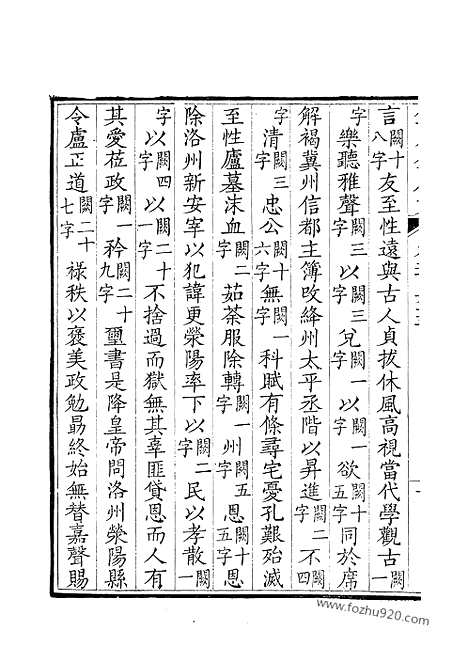 言闕十八字友至性遠與古人貞拔休風高視當代學觀古闕一
字樂聽雅聲闕三字以闕三字兌闕一字以闕一字欲闕十五字同於席
解褐冀州信都主簿改絳州太平丞階以昇進闕二字不闕四
字清闕三字忠公闕十六字無闕一字科賦有條尋宅憂孔艱殆滅
至性廬墓沬血闕二字茹荼服除轉闕一字州闕五字恩闕十五字恩
除洛州新安宰以犯諱更滎陽率下以闕二字民以孝散闕一
字以闕四字以闕二十一字不捨過而獄無其辜匪貸恩而人有
其愛莅政闕一字矜闕二十九字璽書是降皇帝問洛州滎陽縣
令盧正道闕二十七字祿秩以褒美政勉勗終始無替嘉聲賜
www.fozhu920.com